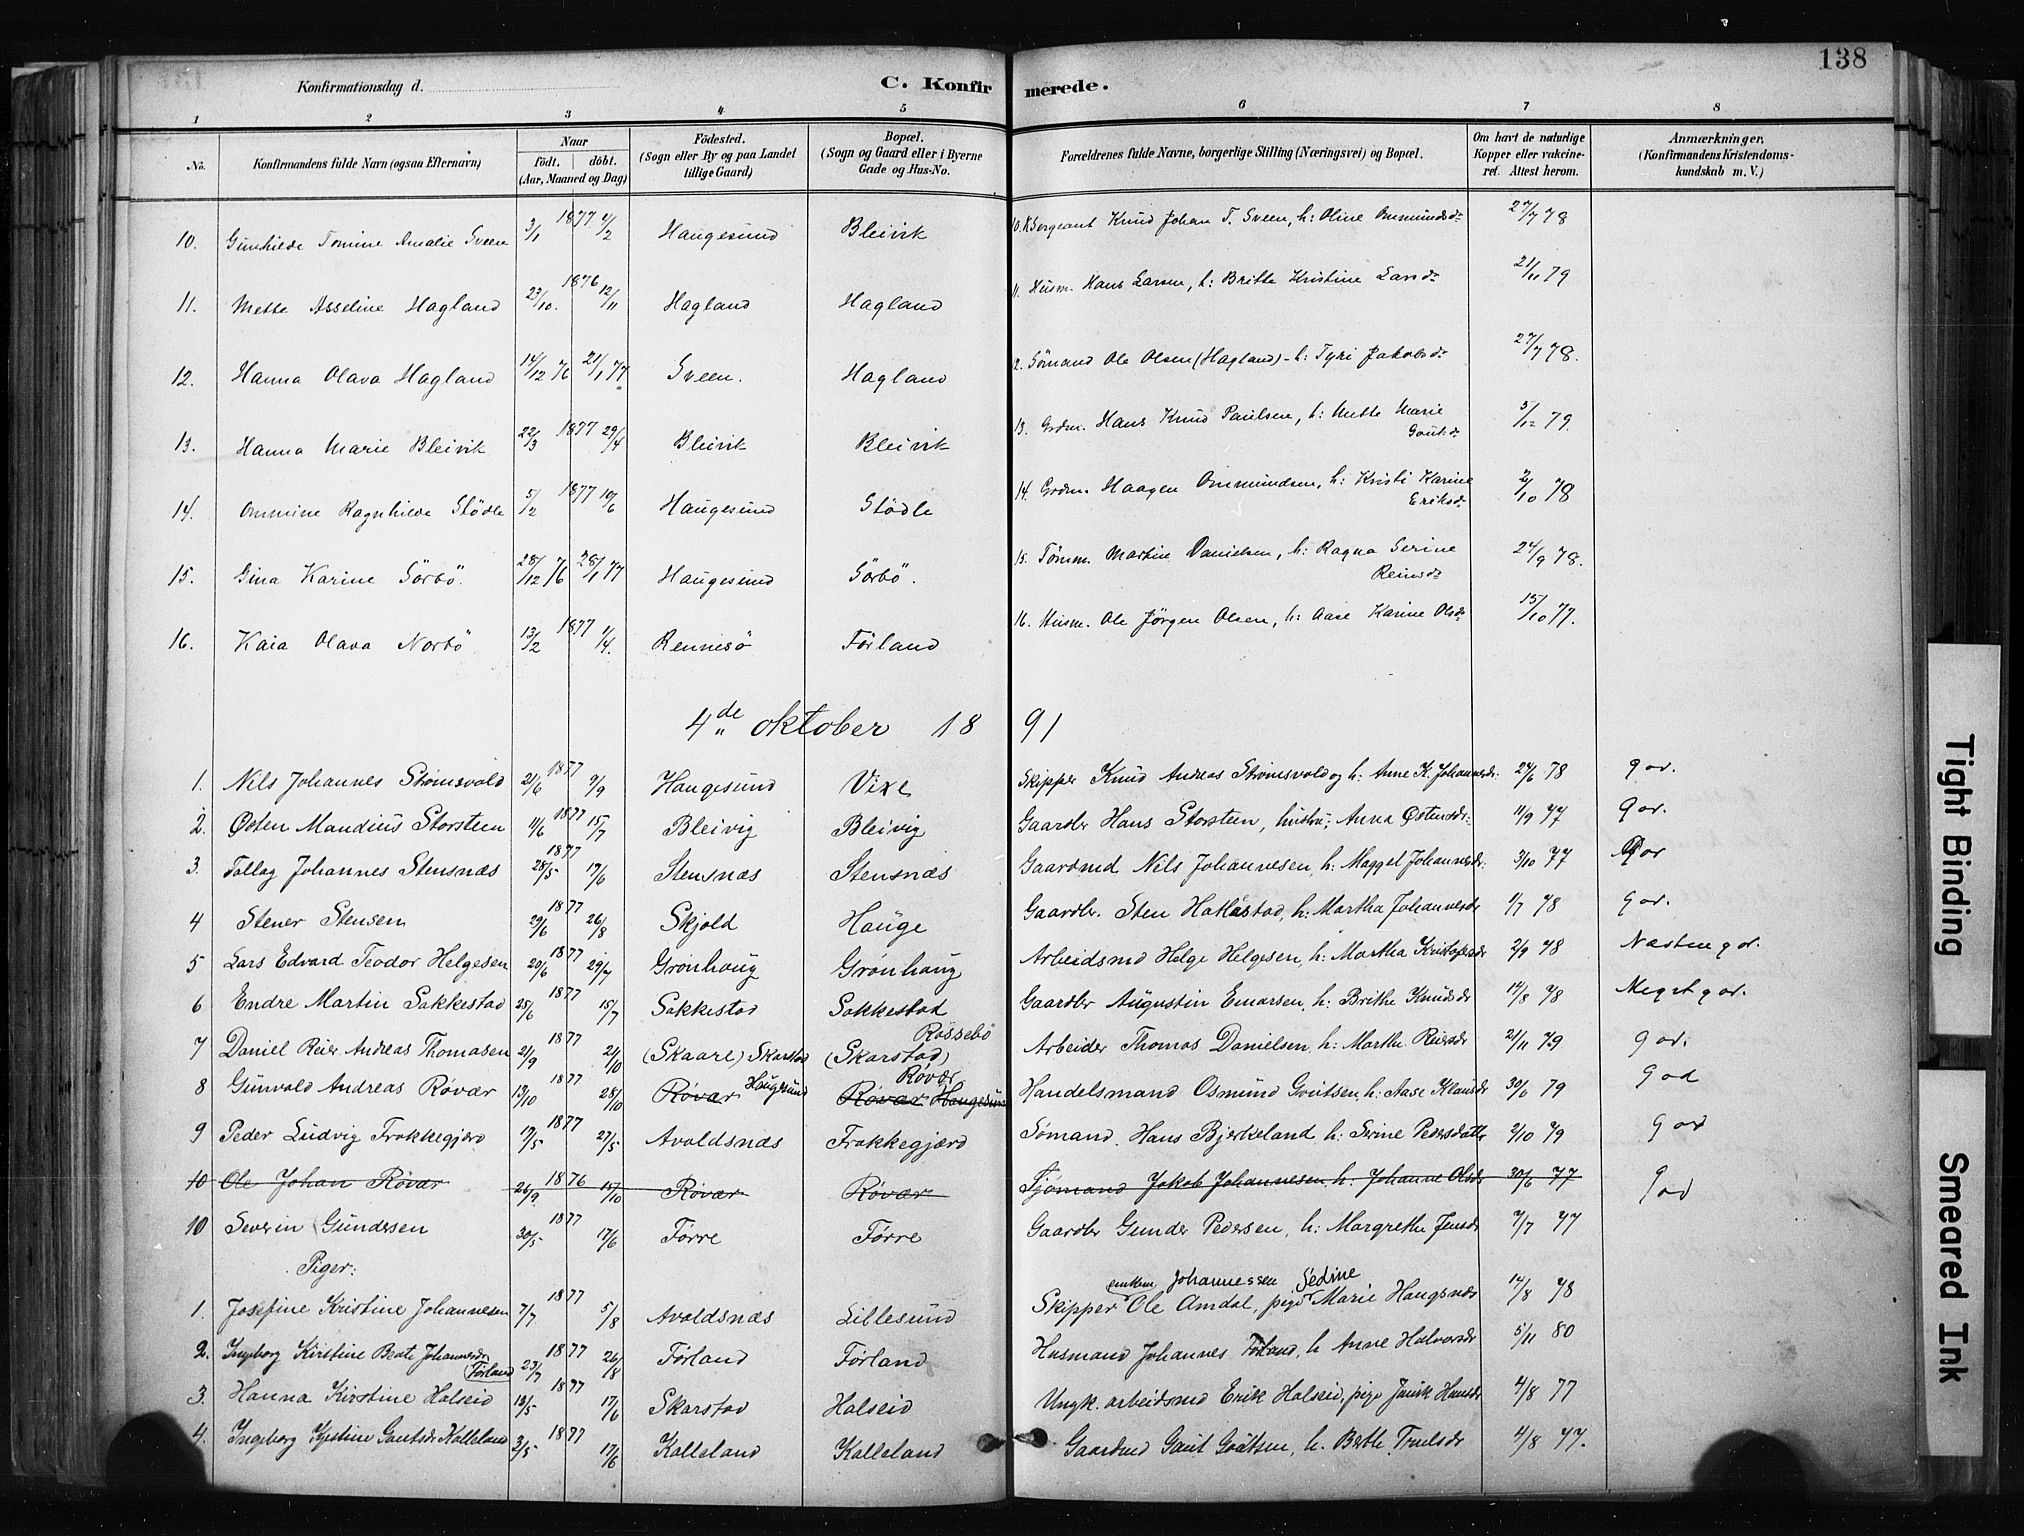 138
Konfirmationsdag d.
C. Konfirmerede.
1 2 3 4 5 6 7 8
No. Konfirmandens fulde Navn (ogsaa Efternavn) Naar födt. döbt. (Aar, Maaned og Dag) Födested. (Sogn eller By og paa Landet tillige Gaard) Bopæl. (Sogn og Gaard eller i Byerne Gade og Hus-No. Forældrenes fulde Navne, borgerlige Stilling (Næringsvei) og Bopæl. Om havt de naturlige Kopper eller vakcineret. Attest herom. Anmærkninger. (Konfirmandens Kristendomskundskab m. V.)
10. Gunhilde Tomine Amalie Sveen 3/1 1877 4/2 Haugesund Bleivik 10. Sergeant Knud Johan T. Sveen, h: Oline Ommundsdr 27/7 78
11. Mette Asseline Hagland 23/10. 1876 12/11 Hagland Hagland 11. Husm. Hans Larsen, h: Britte Kristine Larsdr 21/11 79
12. Hanna Olava Hagland 14/12 76 21/1 77 Sveen. Hagland 12. Sömand Ole Olsen (Hagland) - h: Tyri Jakobsdr 27/7 78.
13. Hanna Marie Bleivik 22/3 1877 29/4 Bleivik Bleivik 13. Grdm. Hans Knud Paulsen, h: Mette Marie Goutsdr 5/12 79.
14. Ommine Ragnhilde Stödle 5/2 1877 10/6 Haugesund Stödle 14. Grdm. Haagen Ommundsen, h: Kristi Karine Eriksdr 2/10 78
15. Gina Karine Sörbö. 28/12 76 28/1 77 Haugesund Sörbö. 15. Tømm. Martin Danielsen, h: Ragna Serine Reinsdr 24/9 78.
16. Kaia Olava Norbö 13/2 1877 1/4. Rennesö Förland 16. Husm. Ole Jörgen Olsen, h: Aase Karine Olsdr 15/10 77.
4de oktober 1891
1. Nils Johannes Strømsvold 21/6 1877 9/9 Haugesund Vixe Skipper Knud Andreas Strømsvold og h: Anne K. Johannesdr. 24/6 78 god.
2. Østen Mandius Storsteen 11/6 1877 15/7 Bleivig Bleivig Gaardbr Hans Storsteen, hustru; Anna Østensdr: 11/9 77 god.
3. Tallag Johannes Stensnæs 28/5 1877 17/6 Stensnæs Stensnæs Gaardmd Nils Johannesen, h: Maggel Johannesdr. 3/10 77 god
4 Stener Stensen 29/6 1877 26/8 Skjold Hauge Gaardbr. Sten Hakestad, h: Martha Johannesdr 1/7 78 god.
5 Lars Edvard Teodor Helgesen 20/6 1877 29/7 Grønhaug Grønhaug Arbeidsmd Helge Helgesen, h: Martha Kristofersdr 2/9 78 Næsten god.
6 Endre Martin Sakkestad 25/6 1877 15/7 Sakkestad Sakkestad Gaardbr Augustin Enarsen, h: Brithe Knudsdr 14/8 78 Meget god.
7 Daniel Reier Andreas Thomasen 21/9 1877 21/10 (Skaare) Skarstad Røssebö (Skarstad) Arbeider Thomas Danielsen, h: Marthe Reiersdr 21/11 79 god.
8 Gunvald Andreas Røvær 13/10 1877 28/10 Røvær Haugesund Røvær Røvær Haugesund Handelsmand Osmund Goutsen, h: Aase Klausdr 30/6 79 God
9 Peder Ludvig Frakkegjerd 17/5 1877 27/5 Avaldsnæs Frakkegjærd Sømand. Hans Bjerkeland, h: Serine Pedersdatter 2/10 79 God
10 Ole Johan Røvær 26/9 1876 15/10 Røvær Røvær Sjømand Jakob Johannesen, h: Johanne Olsdr 30/6 77 God
10 Severin Gundersen 30/5 1877 17/6 Førre Førre Gaardbr Gunder Pedersen, h: Margrethe Jensdr 7/7 77
Piger:
1. Josefine Kristine Johannesen 7/7 1877 5/8 Avaldsnæs Lillesund Skipper enkem. Ole Johannessen Amdal, pige Sedine Marie Haugsnæs 14/8 78
2. Ingeborg Kirstine Beate Johannesdr (Førland) 23/7 1877 26/8 Førland Førland Husmand Johannes Førland, h Anne Halvorsdr 5/11 80
3. Hanna Kirstine Halseid 13/5 1877 17/6 Skarstad Halseid Ungk. arbeidsmd Erik Halseid, pige Hansdr 4/8 77
4. Ingeborg Kjestine Gautsdr Kalleland 3/5 1877 17/6 Kalleland Kalleland Gaardmd Gaut Goutsen, h. Berthe Truelsdr 4/8 77.
Tight Binding
Smeared Ink